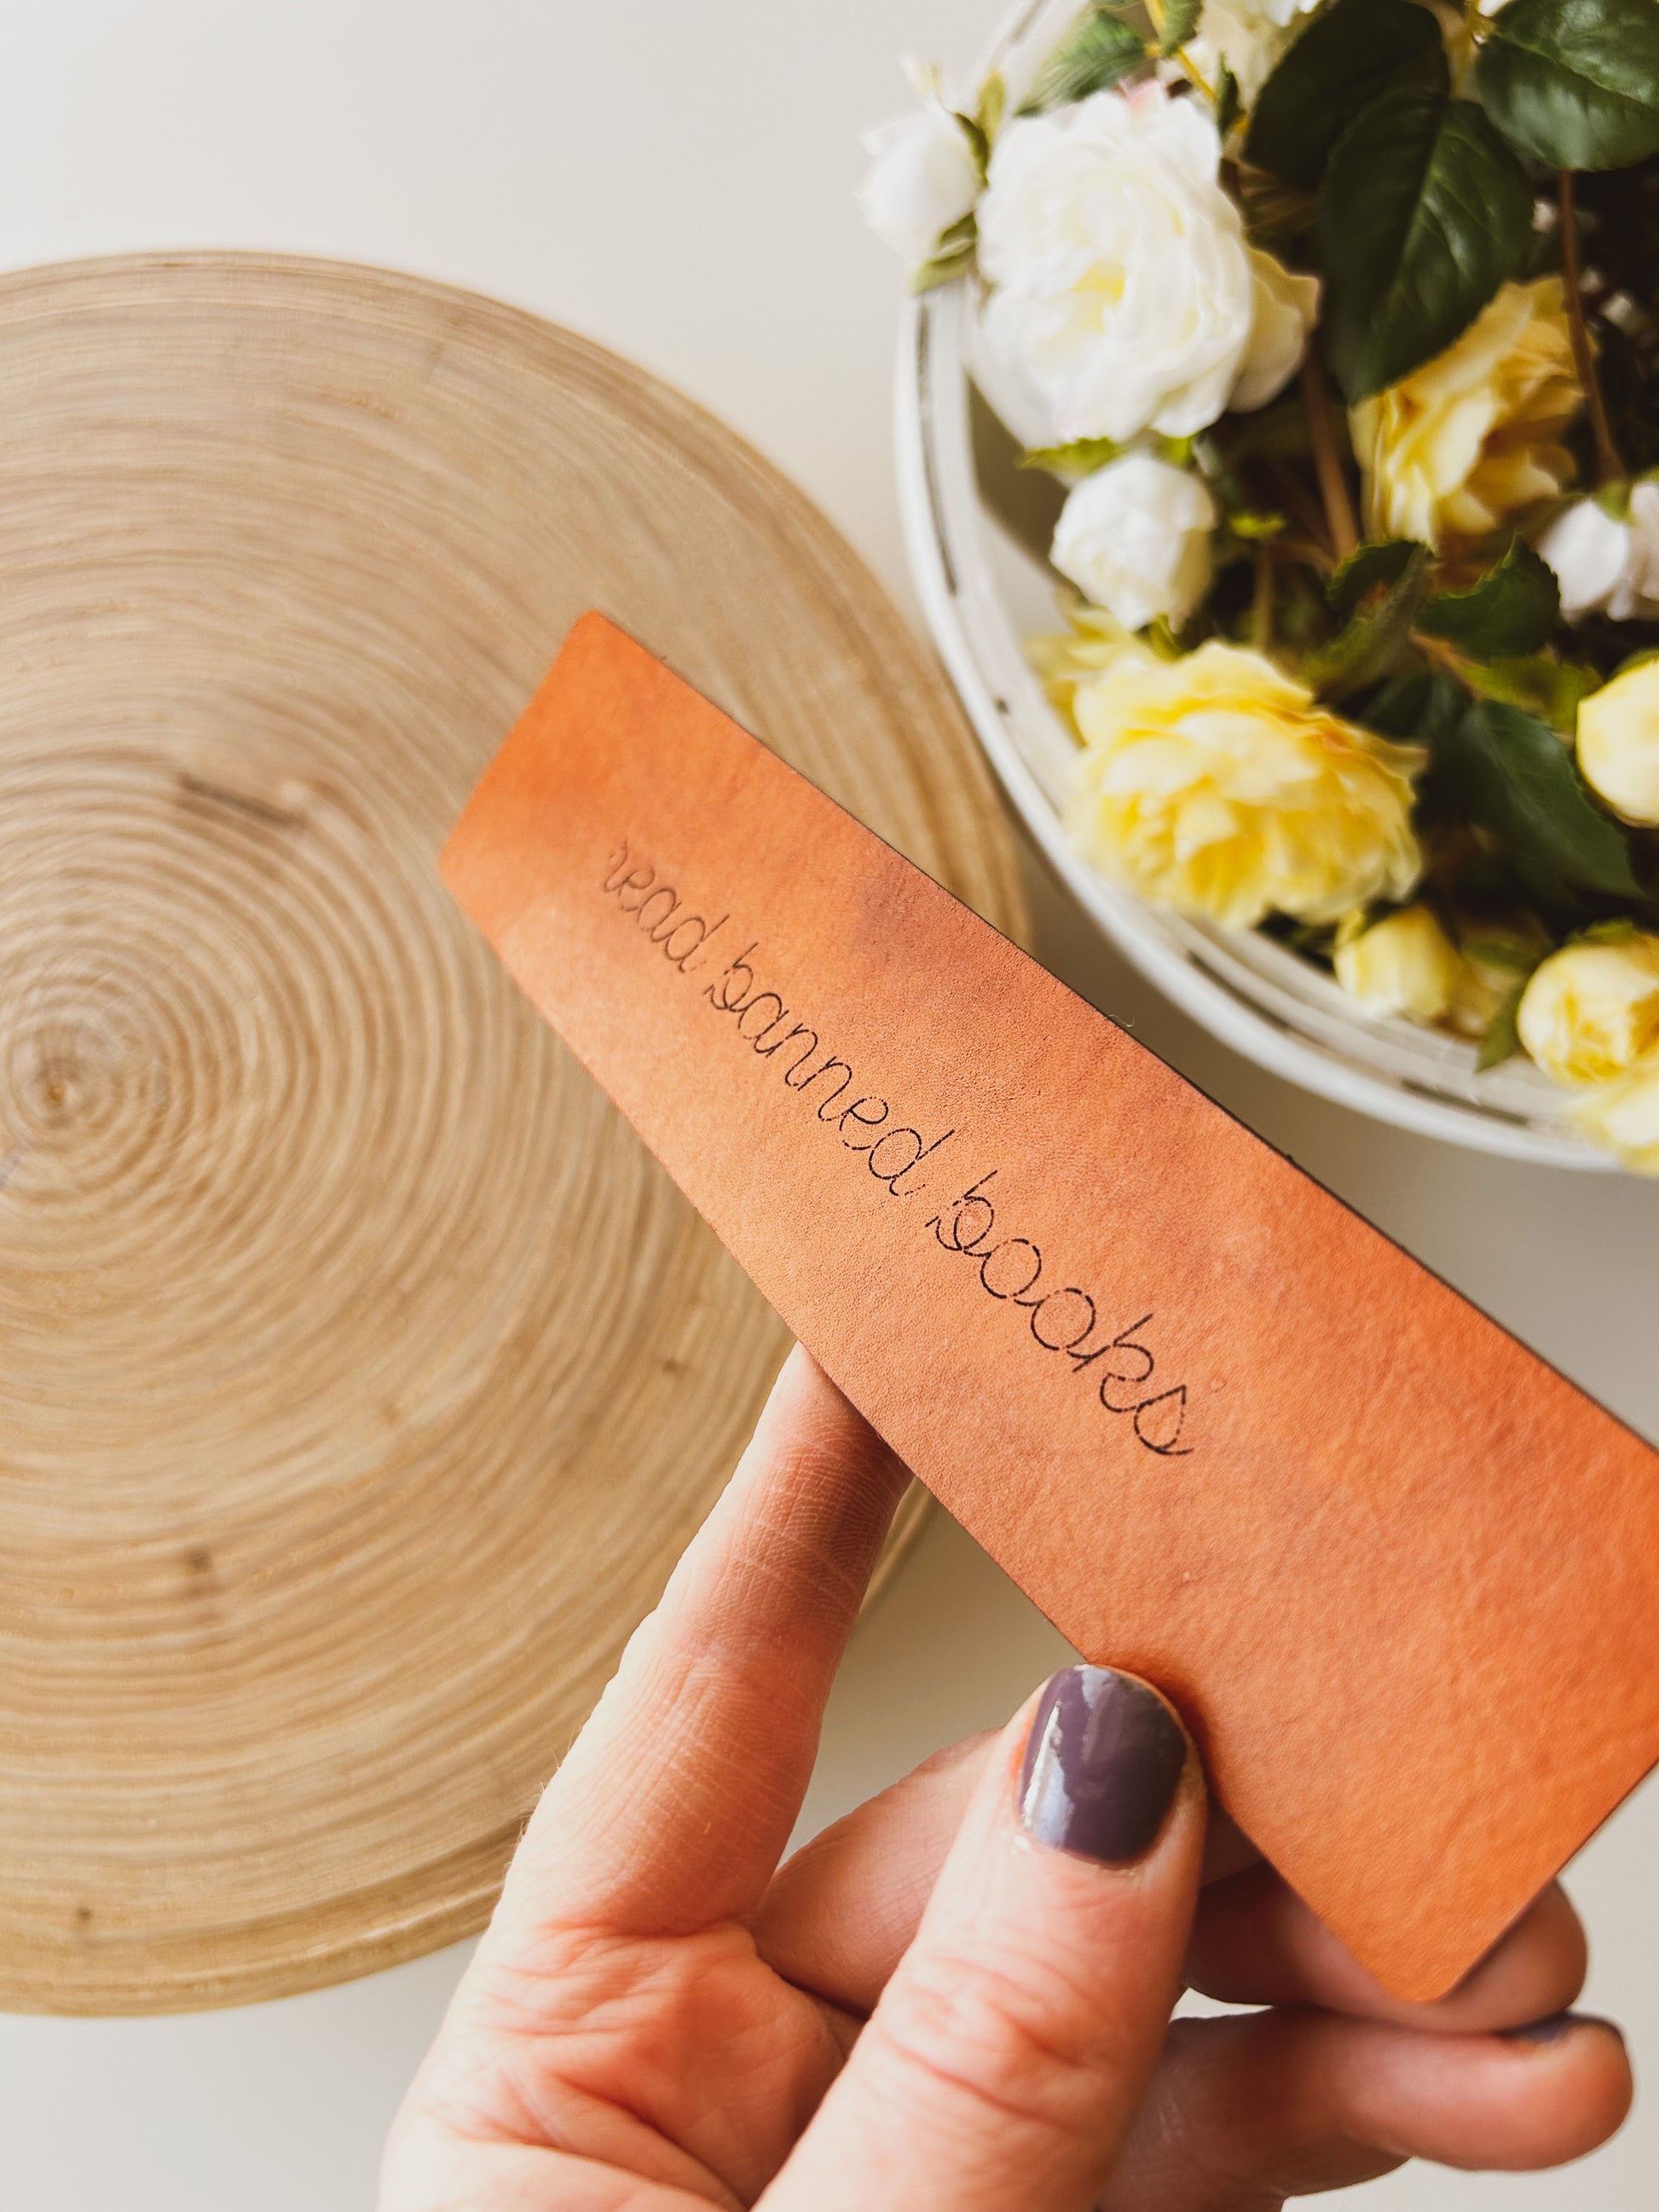 read banned books